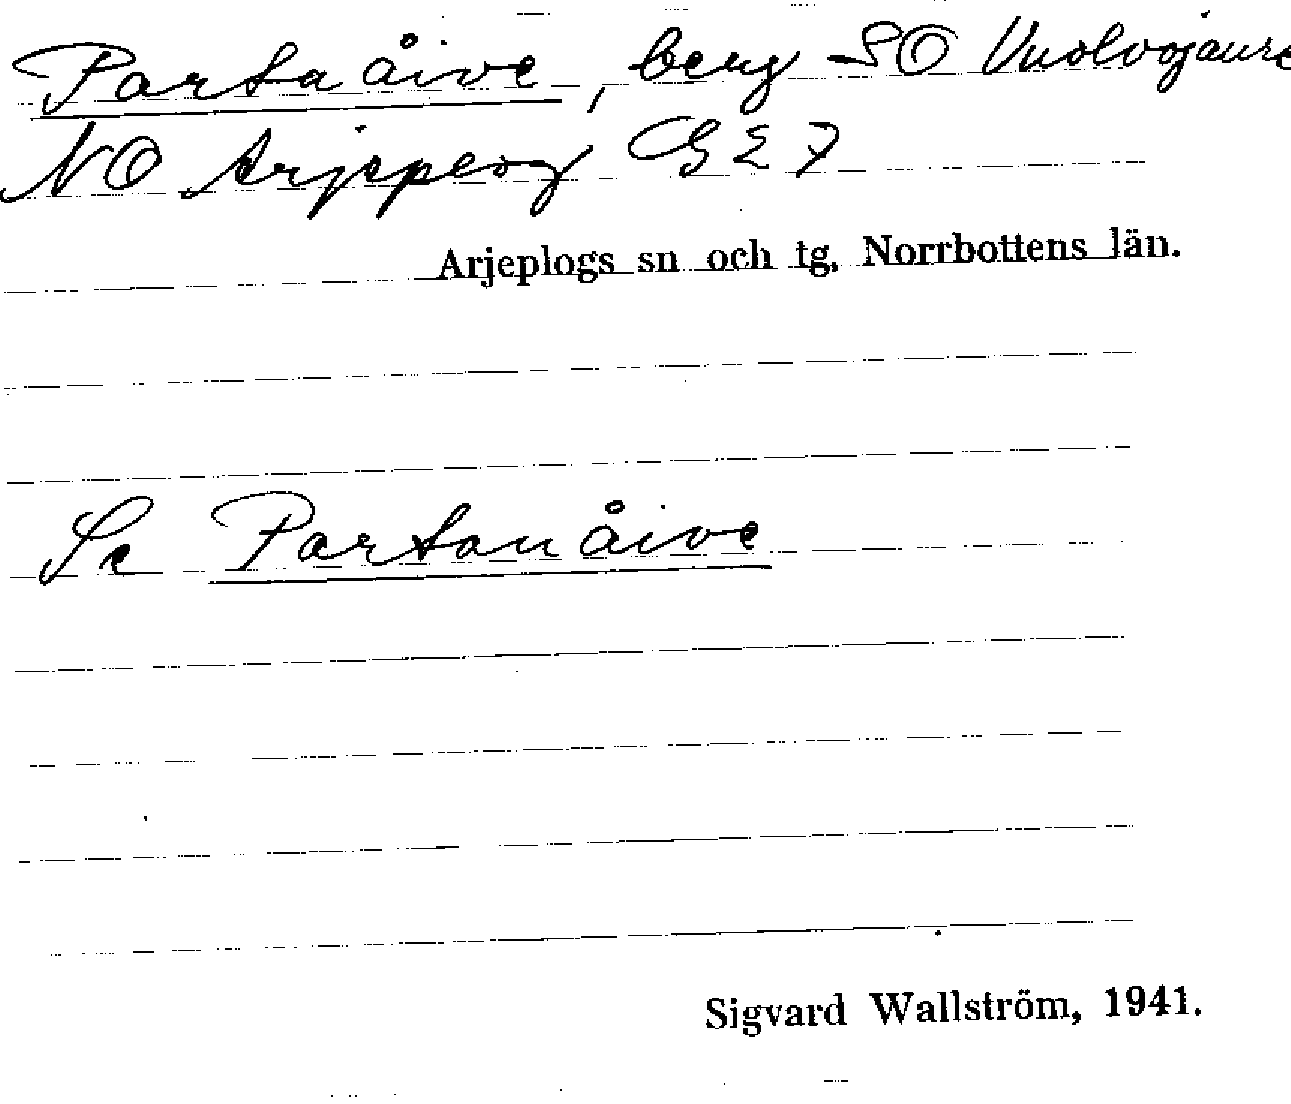 Partaåive, berg SO Vuolvojaure
NO Arjeplog G E 7
Arjeplogs sn och tg. Norrbottens län.
Se Partanåive
Sigvard Wallström, 1941.